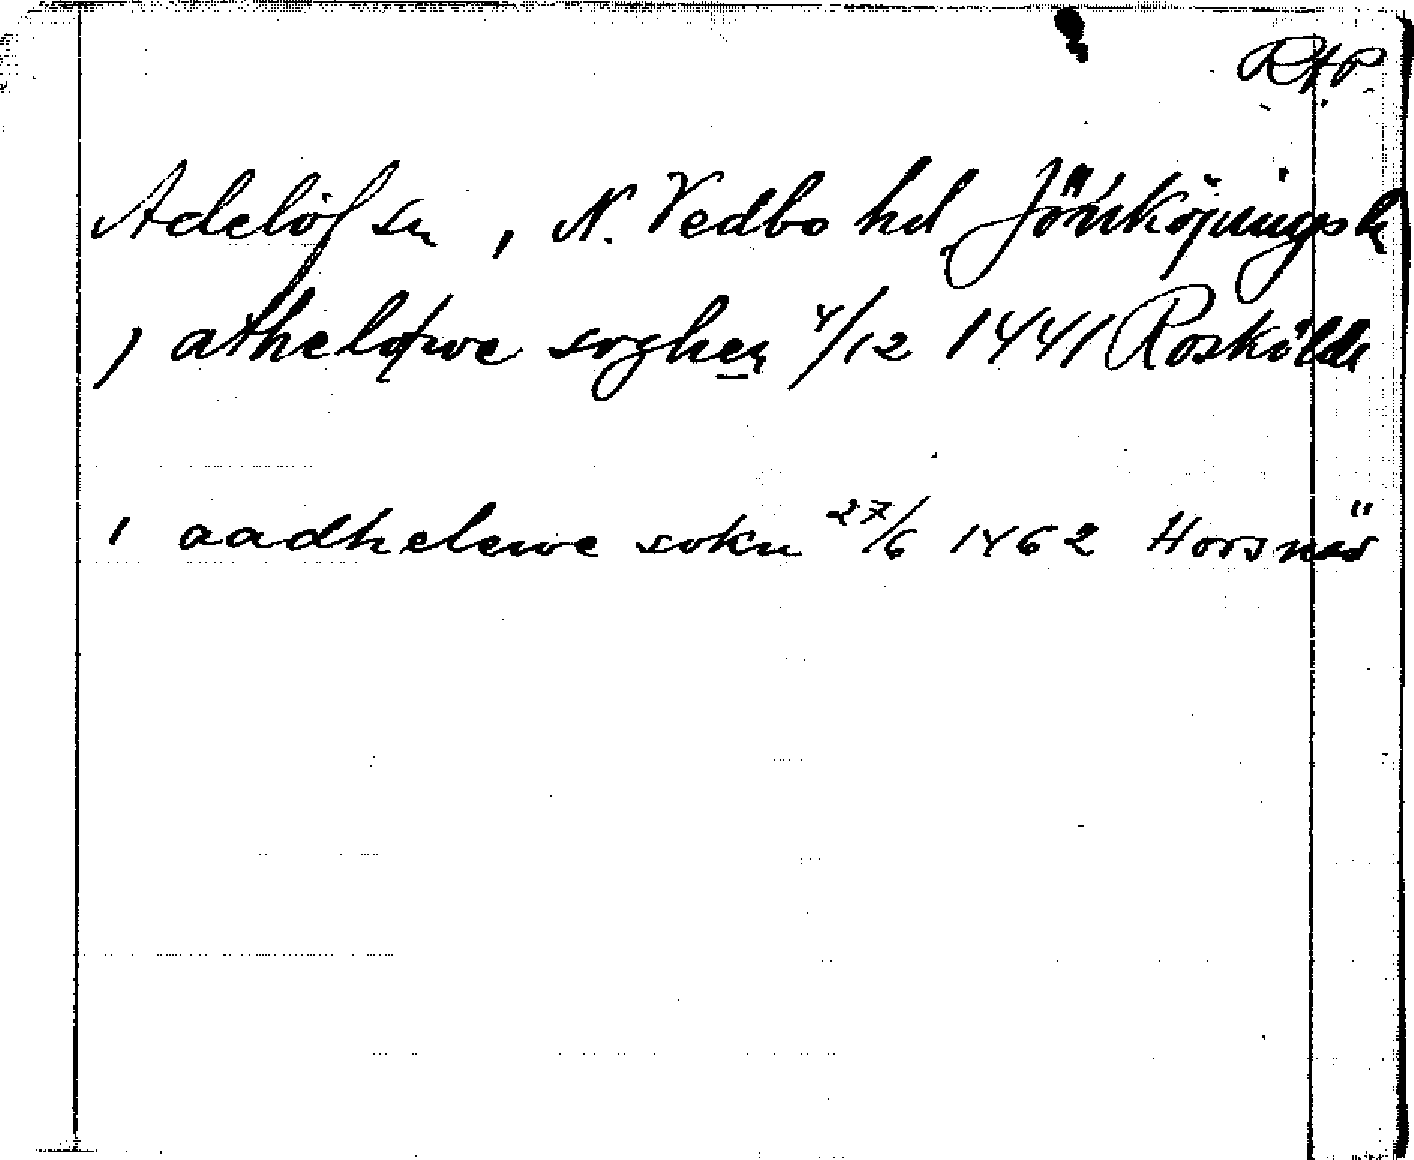 RAP
Adelöf sn, N. Vedbo hd, Jönköpings l.
j atheløwe soghen 4/12 1441 Roskilde
i aadhelewe sokn 27/6 1462 Horsnäs